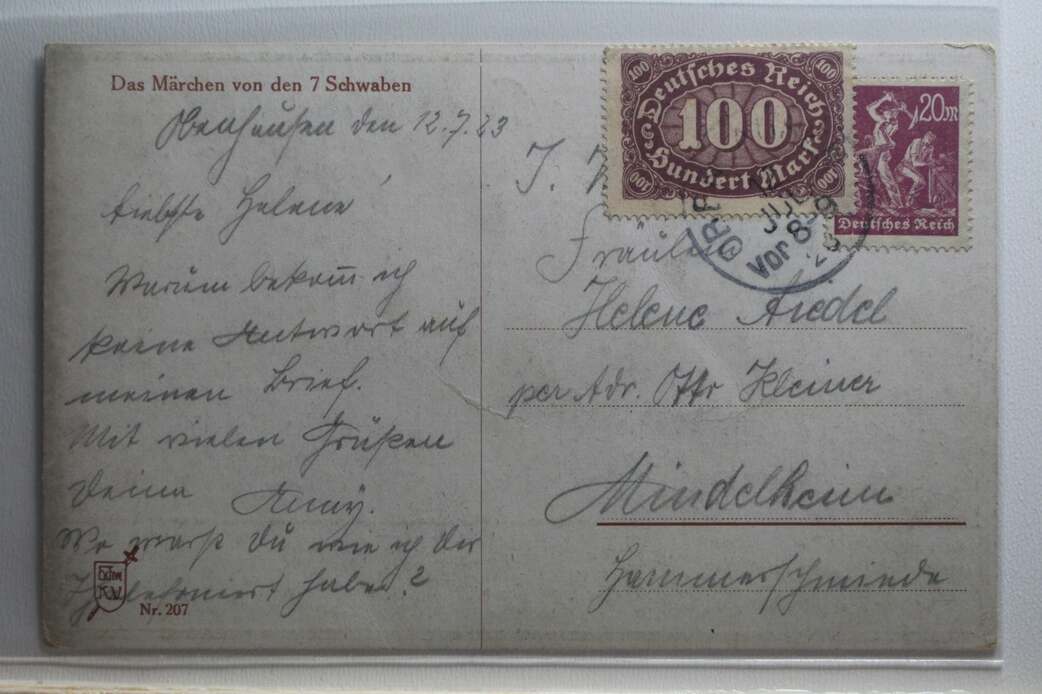 Das Märchen von den 7 Schwaben
Obenhausen den 12.7.23
Liebste Helene!
Warum bekom̅ ich
keine Antwort auf
meinen Brief.
Mit vielen Grüßen
Deine
Wo warst Du wie ich dir
telefoniert habe?
Nr. 207
100 100
Deutsches Reich
100
Hundert Mark
100 100
20 M
Deutsches Reich
JUL
Vor 8-9
23
Fräulein
Helene Riedel
per Adr. Otto Kleiner
Mindelheim
Hammerschmiede